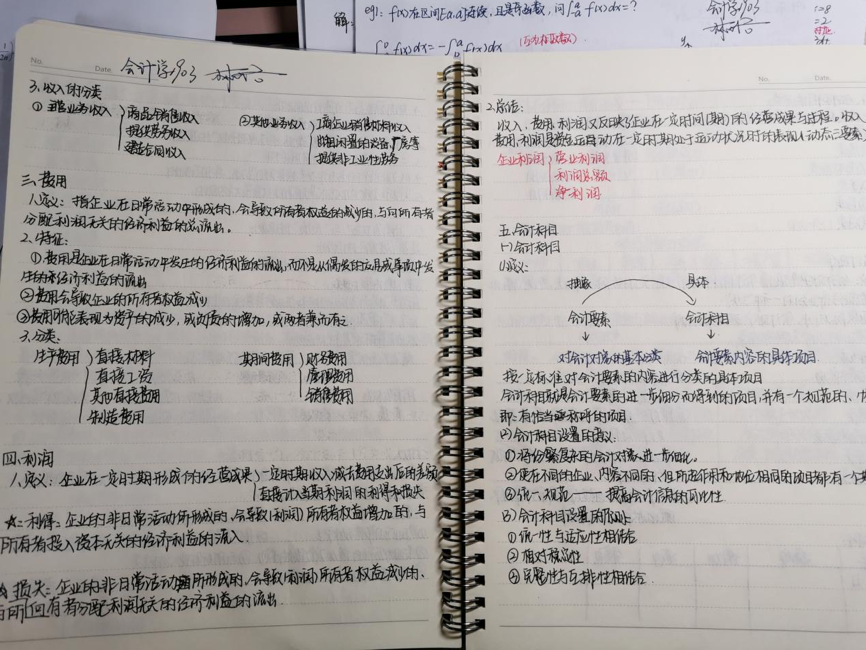 解: eg1: f(x)在区间[-a,a]连续, 且是奇函数, 问∫f(x)dx=?
会计学903
No.
Date. 会计学903
3.收入的分类
①主营业务收入 商品销售收入
提供劳务收入
建造合同收入
②其他业务收入 工商企业销售材料收入
提供非工业性劳务
三.费用
1.定义: 指企业在日常活动中形成的,会导致所有者权益的减少的,与向所有者
分配利润无关的经济利益的总流出。
2.特征:
①费用是企业在日常活动中发生的经济利益的流出,而不是从偶发的交易或事项中发
生的经济利益的流出
②费用会导致企业的所有者权益减少
③费用可能表现为资产的减少,或负债的增加,或两者兼而有之
3.分类:
生产费用 直接材料
直接工资
其他直接费用
制造费用
期间费用 财务费用
管理费用
销售费用
四.利润
1.定义: 企业在一定时期形成的经营成果 一定时期收入减去费用支出后的差额
直接计入当期利润的利得和损失
☆利得: 企业的非日常活动所形成的,会导致(利润)所有者权益增加的,与
所有者投入资本无关的经济利益的流入.
☆损失: 企业的非日常活动所形成的,会导致(利润)所有者权益减少的、
与向所有者分配利润无关的经济利益的流出.
No.
Date.
2.总结:
收入、费用、利润又反映了企业在一定时间(期)的经营成果与进程。收入
费用、利润是资金运动在一定时期处于运动状况时的表现(动态三要素)
企业利润 营业利润
利润总额
净利润
五.会计科目
(一)会计科目
(1)定义:
抽象 具体
会计要素 会计科目
对会计对象的基本分类 会计要素内容的具体项目
按一定标准对会计要素的内容进行分类的具体项目
会计科目就是会计要素的进一步细分而得到的项目,并有一个规范的、
即:有恰当称呼的项目.
(2)会计科目设置的意义:
①将纷繁复杂的会计对象进一步细化。
②使在不同的企业、内容不同的,但所起作用和地位相同的项目都有一个
③统一规范 —— 提高会计信息的可比性
(3)会计科目设置的原则:
①统一性与适应性相结合
②相对稳定性
③完整性与互排性相结合.